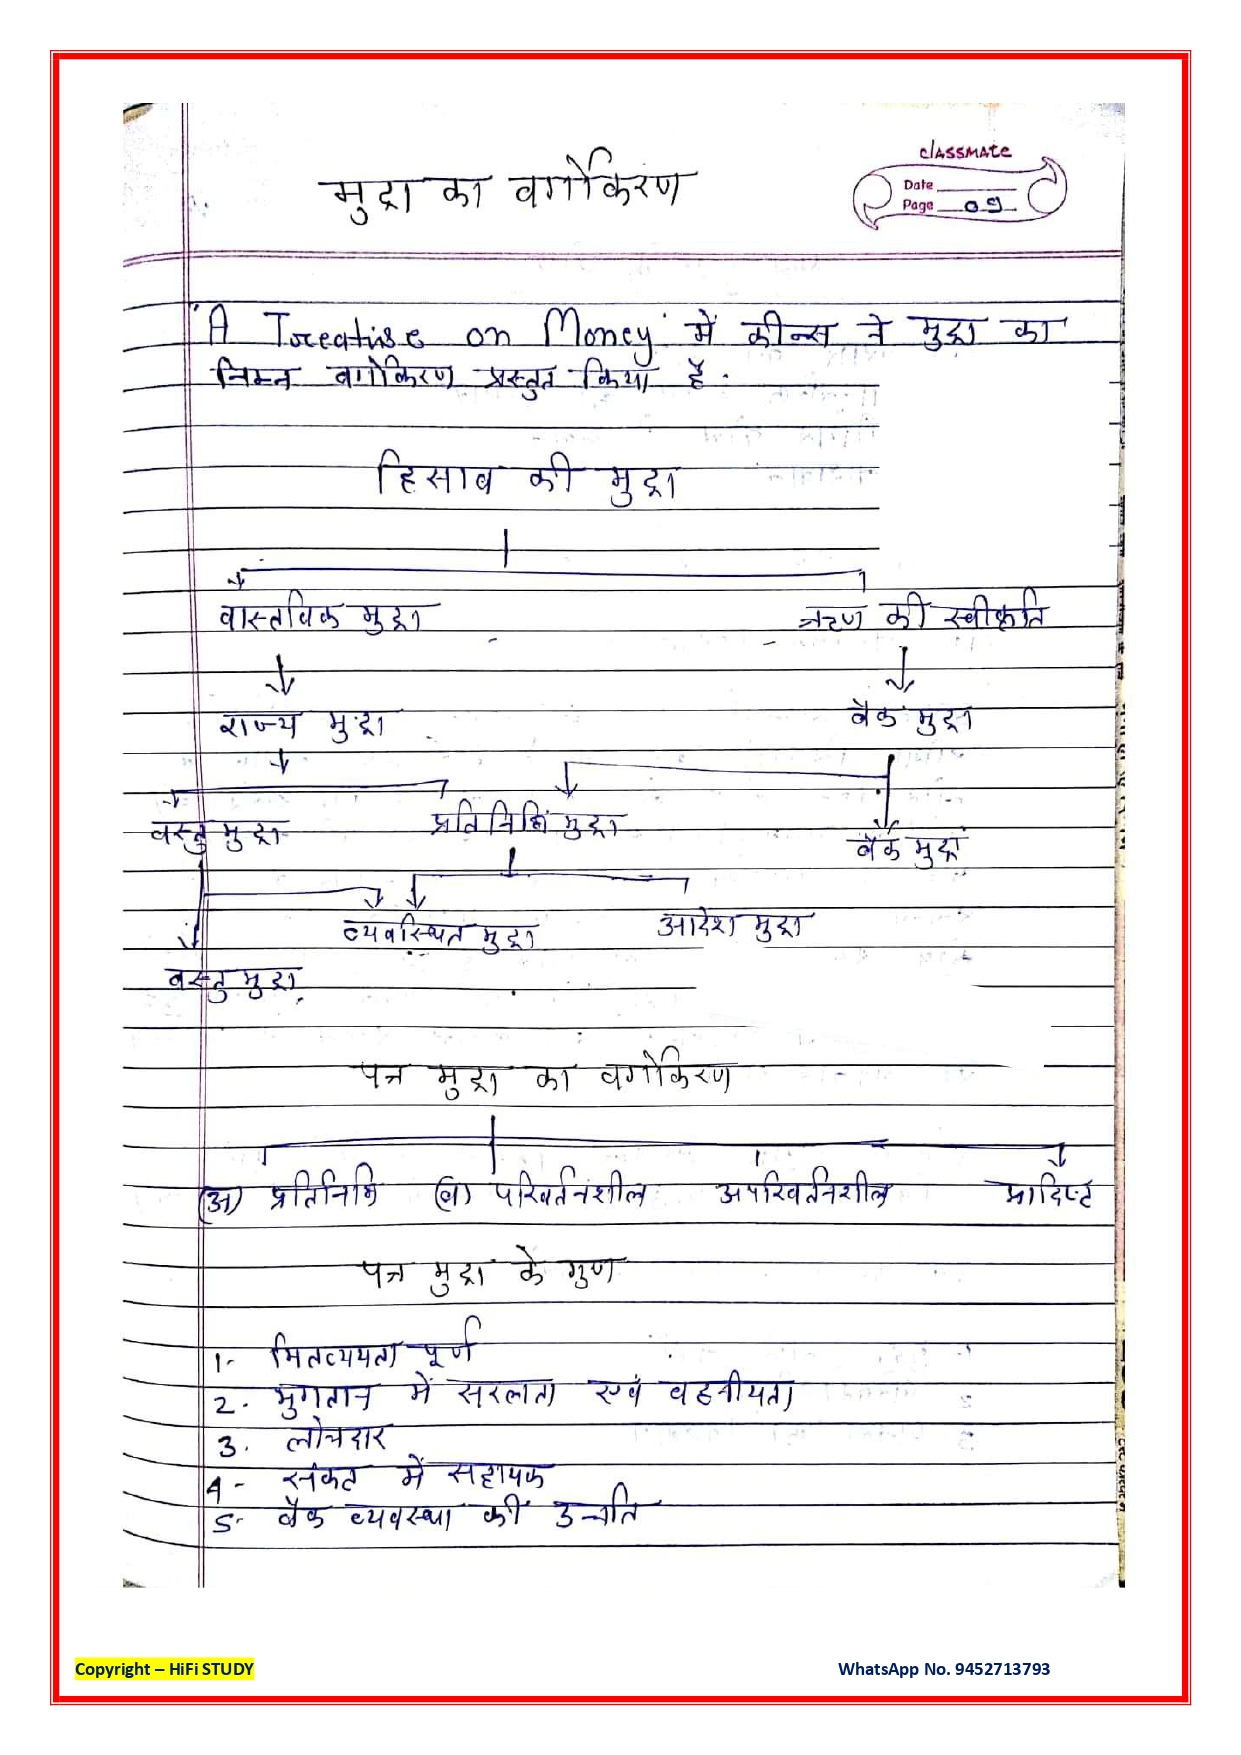 classmate
Date
Page 09
मुद्रा का वर्गीकरण
'A Treatise on Money' में कीन्स ने मुद्रा का
निम्न वर्गीकरण प्रस्तुत किया है.
हिसाब की मुद्रा
वास्तविक मुद्रा ऋण की स्वीकृति
राज्य मुद्रा बैंक मुद्रा
वस्तु मुद्रा प्रतिनिधि मुद्रा बैंक मुद्रा
व्यवस्थित मुद्रा आदेश मुद्रा
वस्तु मुद्रा
पत्र मुद्रा का वर्गीकरण
(अ) प्रतिनिधि (ब) परिवर्तनशील अपरिवर्तनशील प्रादिष्ट
पत्र मुद्रा के गुण
1- मितव्ययता पूर्ण
2. भुगतान में सरलता एवं वहनीयता
3. लोचदार
4- संकट में सहायक
5- बैंक व्यवस्था की उन्नति
Copyright – HiFi STUDY WhatsApp No. 9452713793